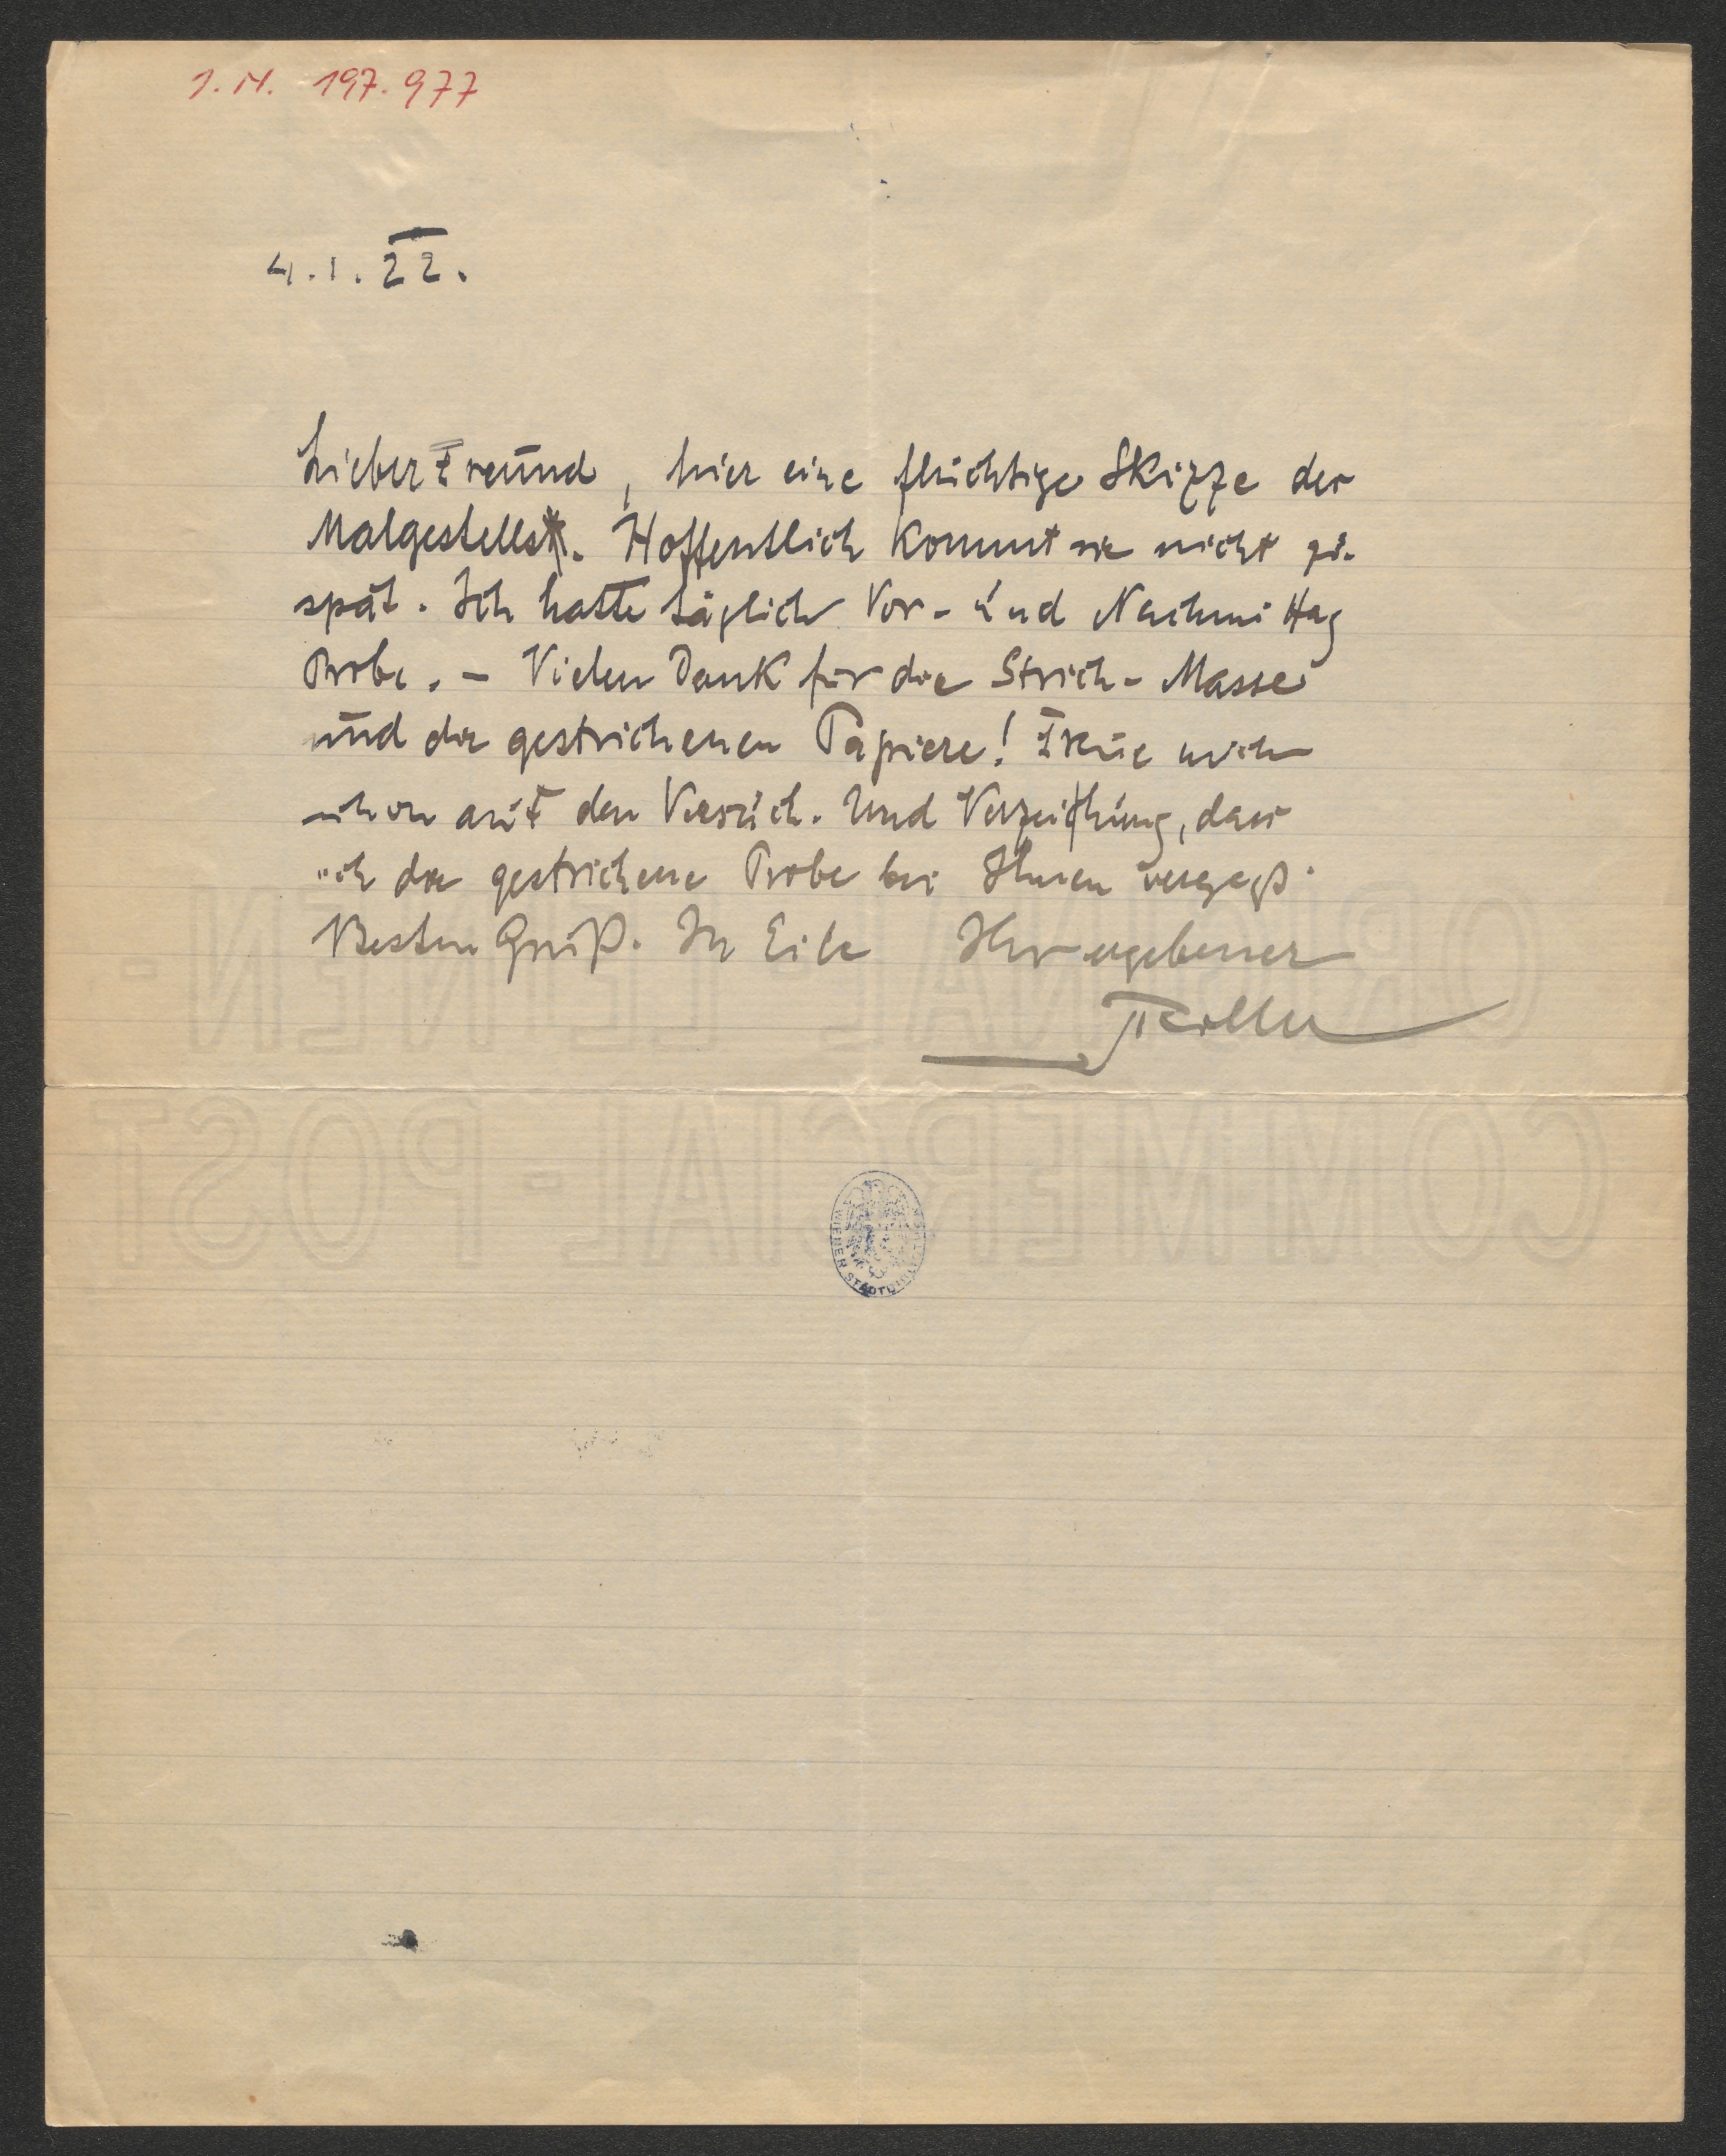 I.N. 197.977
4.I.22.
Lieber Freund, hier eine flüchtige Skizze des
Malgestells. Hoffentlich kommt sie nicht zu
spät. Ich hatte täglich Vor- und Nachmittag
Probe. – Vielen Dank für die Strich-Masse
und die gestrichenen Papiere! Freue mich
schon auf den Versuch. Und Verzeihung, dass
ich die gestrichene Probe bei Ihnen vergaß.
Besten Gruß. In Eile Ihr ergebener
Roller
ORIGINAL LEINEN
COMMERCIAL-POST
WIENER STADTBIBLIOTHEK